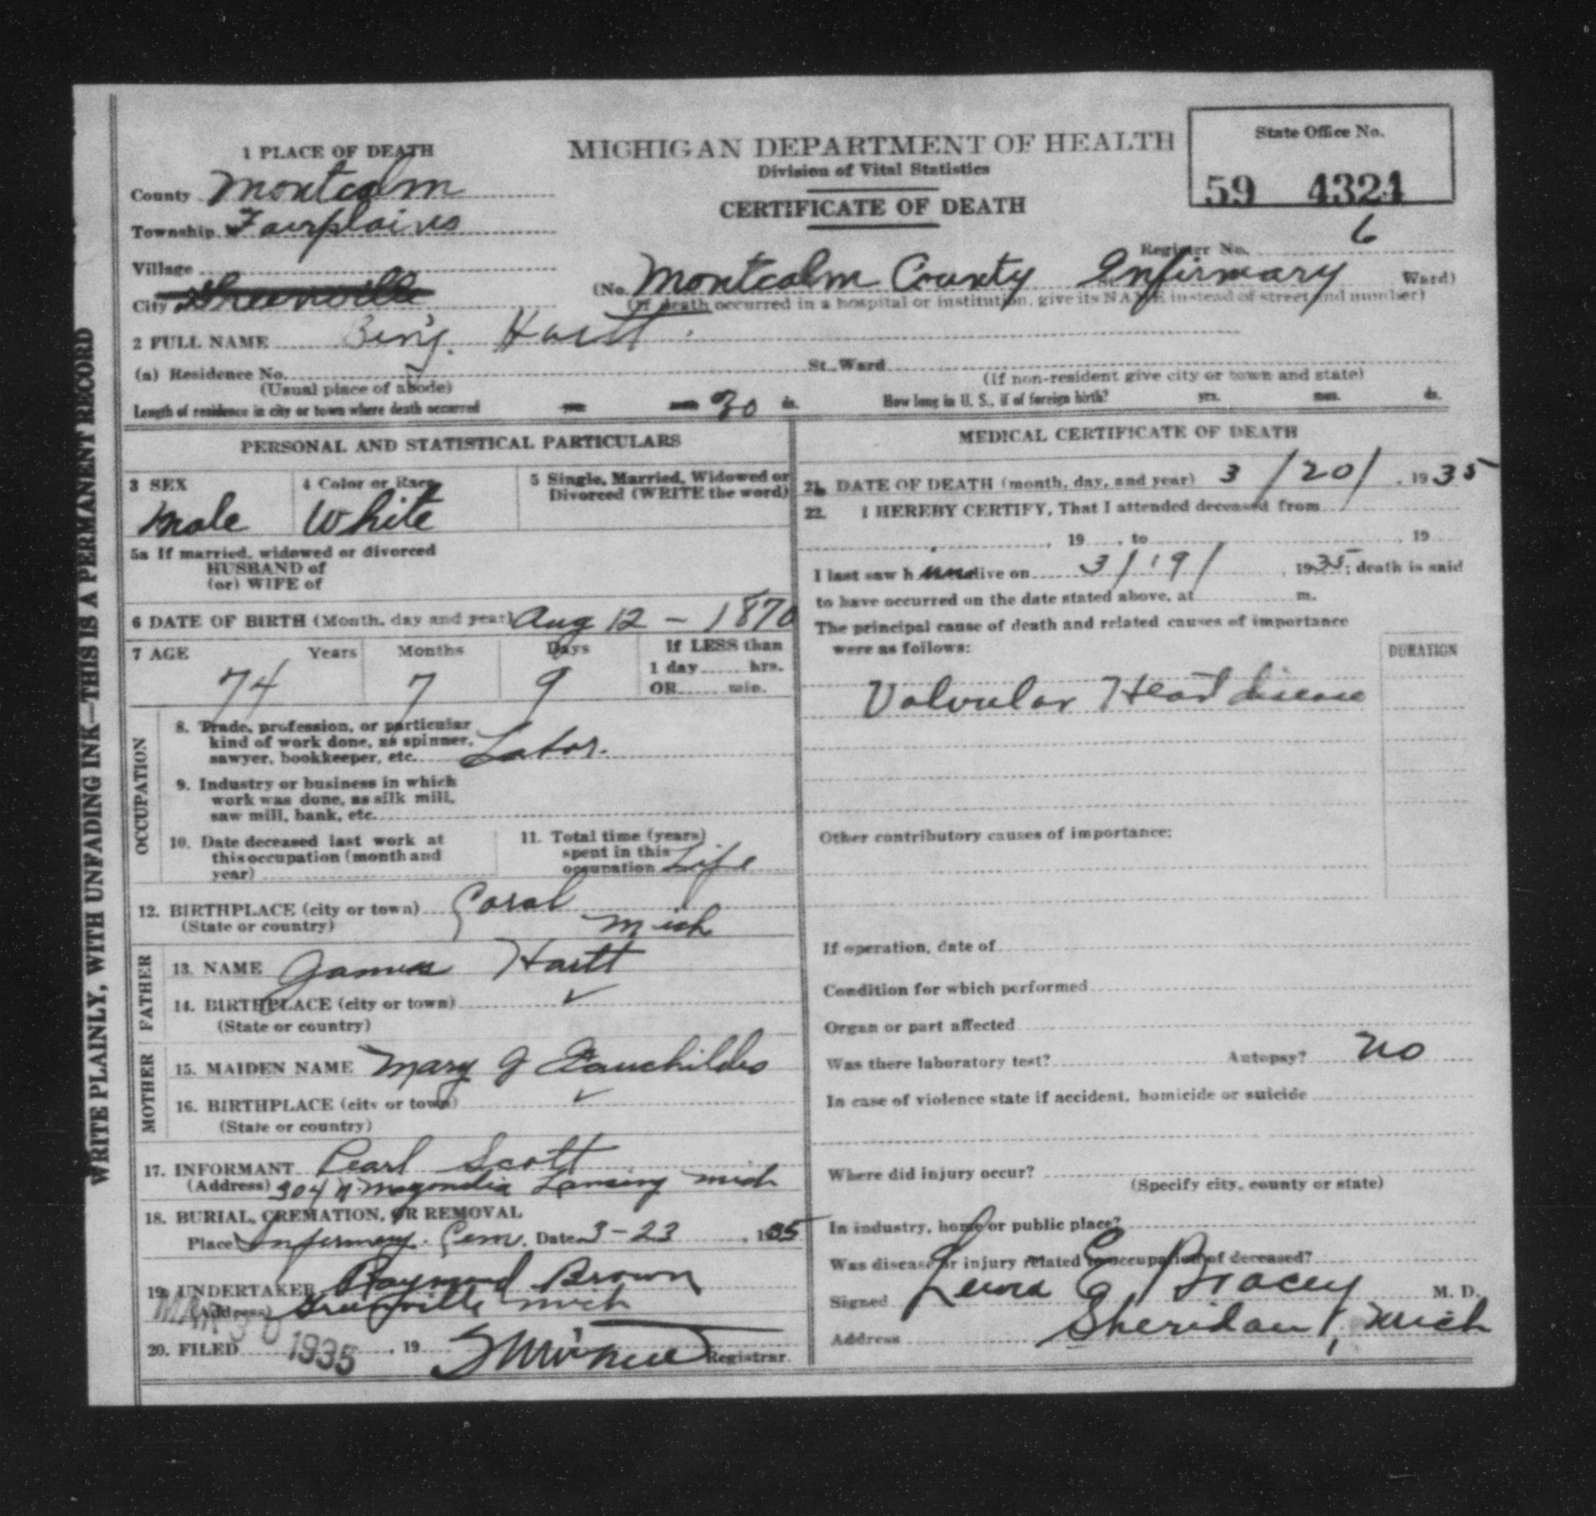 WRITE PLAINLY, WITH UNFADING INK—THIS IS A PERMANENT RECORD
1 PLACE OF DEATH
County Montcalm
Township Fairplains
Village
City Greenville
MICHIGAN DEPARTMENT OF HEALTH
Division of Vital Statistics
CERTIFICATE OF DEATH
State Office No.
59 4324
Register No. 6
(No. Montcalm County Infirmary Ward)
(If death occurred in a hospital or institution, give its NAME instead of street and number)
2 FULL NAME Benj. Hartt
(a) Residence No. St. Ward
(Usual place of abode) (If non-resident give city or town and state)
Length of residence in city or town where death occurred 30 ds. How long in U. S., if of foreign birth? yrs. mos. ds.
PERSONAL AND STATISTICAL PARTICULARS
3 SEX
Male
4 Color or Race
White
5 Single, Married, Widowed or
Divorced (WRITE the word)
5a If married, widowed or divorced
HUSBAND of
(or) WIFE of
6 DATE OF BIRTH (Month, day and year) Aug 12 - 1870
7 AGE Years Months Days If LESS than
1 day hrs.
74 7 9 OR min.
OCCUPATION
8. Trade, profession, or particular
kind of work done, as spinner,
sawyer, bookkeeper, etc. Labor.
9. Industry or business in which
work was done, as silk mill,
saw mill, bank, etc.
10. Date deceased last work at
this occupation (month and
year)
11. Total time (years)
spent in this
occupation Life
12. BIRTHPLACE (city or town) Coral
(State or country) Mich
FATHER
13. NAME James Hartt
14. BIRTHPLACE (city or town) ✓
(State or country)
MOTHER
15. MAIDEN NAME Mary J
16. BIRTHPLACE (city or town) ✓
(State or country)
17. INFORMANT Pearl Scott
(Address) 304 N. Magnolia Lansing Mich
18. BURIAL, CREMATION, OR REMOVAL
Place Infirmary Cem. Date 3-23, 1935
19. UNDERTAKER Raymond Brown
(Address) Greenville Mich
MAR 30 1935
20. FILED , 19
Registrar.
MEDICAL CERTIFICATE OF DEATH
21. DATE OF DEATH (month, day, and year) 3/20/, 1935
22. I HEREBY CERTIFY, That I attended deceased from
, 19 , to , 19
I last saw h im alive on 3/19/, 1935; death is said
to have occurred on the date stated above, at m.
The principal cause of death and related causes of importance
were as follows:
DURATION
Valvular Heart disease
Other contributory causes of importance:
If operation, date of
Condition for which performed
Organ or part affected
Was there laboratory test? Autopsy? no
In case of violence state if accident, homicide or suicide
Where did injury occur?
(Specify city, county or state)
In industry, home or public place?
Was disease or injury related to occupation of deceased?
Signed Lewis E Bracey M. D.
Address Sheridan, Mich